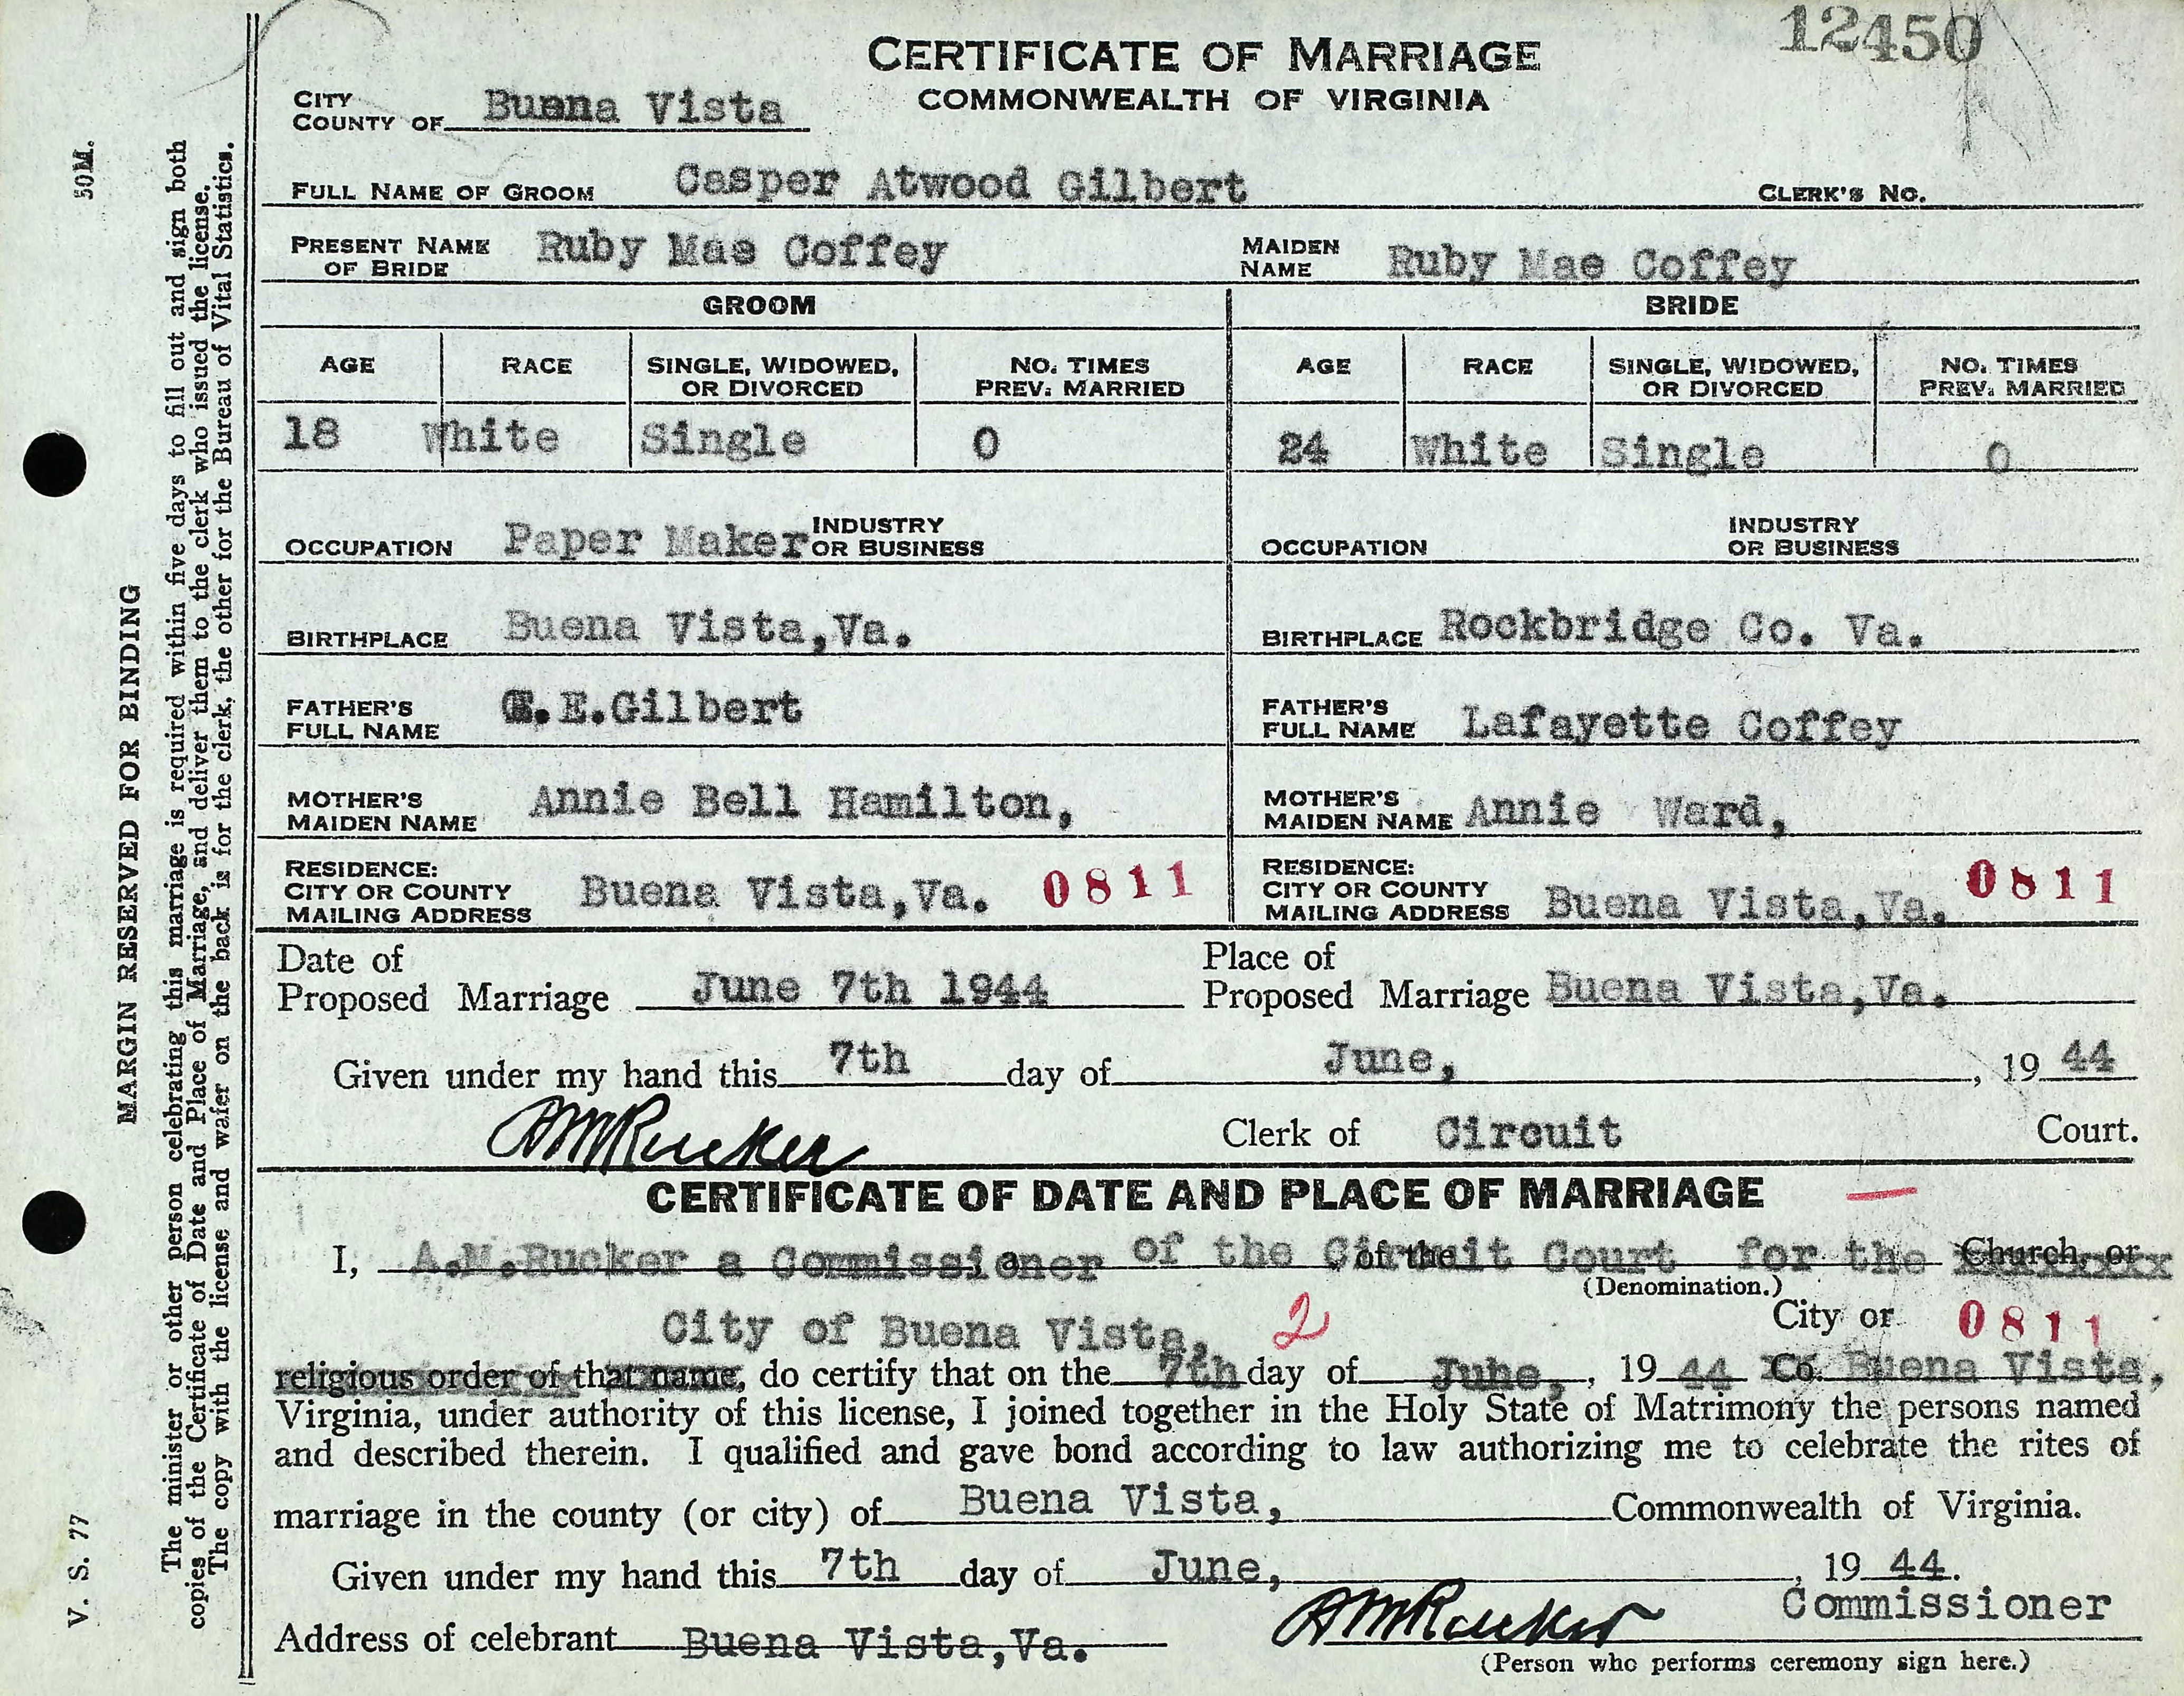 12450
CERTIFICATE OF MARRIAGE
COMMONWEALTH OF VIRGINIA
CITY
COUNTY OF Buena Vista
FULL NAME OF GROOM Casper Atwood Gilbert CLERK'S NO.
PRESENT NAME OF BRIDE Ruby Mae Coffey MAIDEN NAME Ruby Mae Coffey
GROOM BRIDE
AGE RACE SINGLE, WIDOWED, OR DIVORCED NO. TIMES PREV. MARRIED AGE RACE SINGLE, WIDOWED, OR DIVORCED NO. TIMES PREV. MARRIED
18 White Single 0 24 White Single 0
OCCUPATION Paper Maker INDUSTRY OR BUSINESS OCCUPATION INDUSTRY OR BUSINESS
BIRTHPLACE Buena Vista,Va. BIRTHPLACE Rockbridge Co. Va.
FATHER'S FULL NAME E.Gilbert FATHER'S FULL NAME Lafayette Coffey
MOTHER'S MAIDEN NAME Annie Bell Hamilton, MOTHER'S MAIDEN NAME Annie Ward,
RESIDENCE: CITY OR COUNTY MAILING ADDRESS Buena Vista,Va. 0811 RESIDENCE: CITY OR COUNTY MAILING ADDRESS Buena Vista,Va. 0811
Date of Proposed Marriage June 7th 1944 Place of Proposed Marriage Buena Vista,Va.
Given under my hand this 7th day of June, , 19 44
AMRucker Clerk of Circuit Court.
CERTIFICATE OF DATE AND PLACE OF MARRIAGE
I, A.M.Rucker a Commissioner of the Circuit Court for the Church, or
(Denomination.)
City of Buena Vista, 2 City or 0811
religious order of that name, do certify that on the 7th day of June, , 19 44 Co. Buena Vista,
Virginia, under authority of this license, I joined together in the Holy State of Matrimony the persons named
and described therein. I qualified and gave bond according to law authorizing me to celebrate the rites of
marriage in the county (or city) of Buena Vista, Commonwealth of Virginia.
Given under my hand this 7th day of June, , 19 44.
Address of celebrant Buena Vista,Va. AMRucker Commissioner
(Person who performs ceremony sign here.)
50M.
MARGIN RESERVED FOR BINDING
V. S. 77
The minister or other person celebrating this marriage is required within five days to fill out and sign both
copies of the Certificate of Date and Place of Marriage, and deliver them to the clerk who issued the license.
The copy with the license and wafer on the back is for the clerk, the other for the Bureau of Vital Statistics.